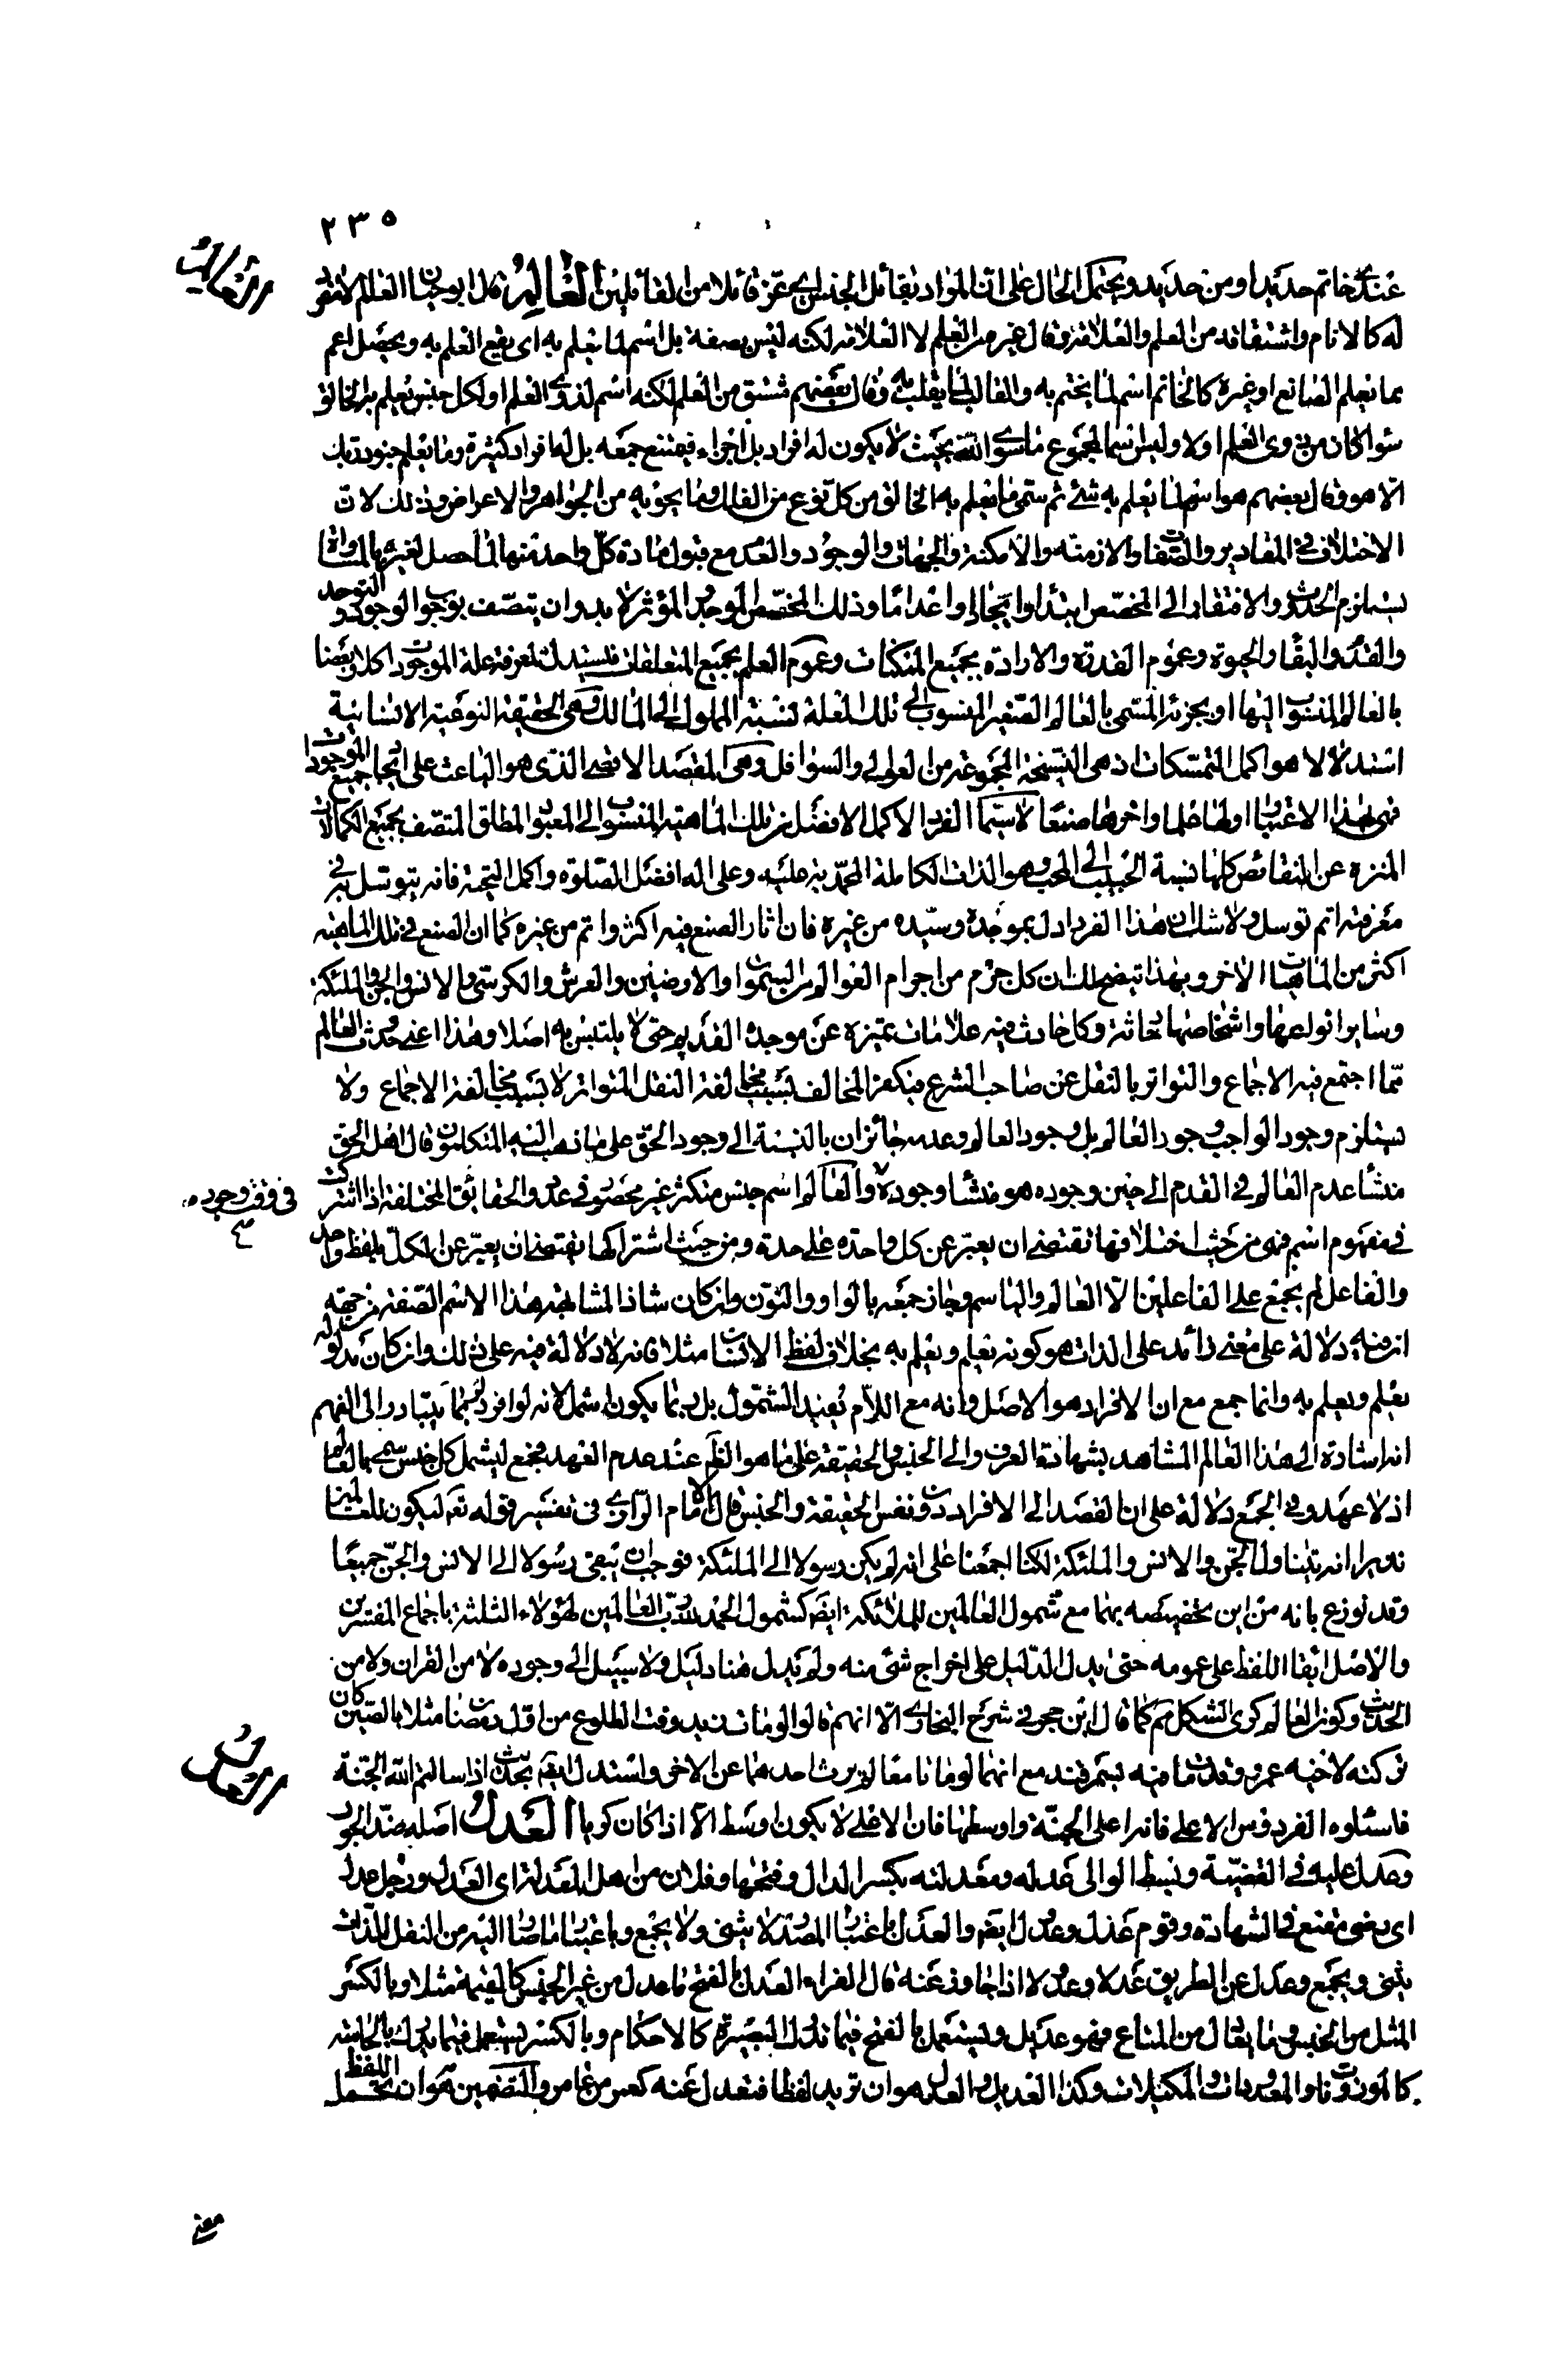 ٢٣٥
العالم
عندى خاتم حديدا ومن حديد ويحتمل الحال على ان المراد بقائل الجنس اى عز قائلا من القائلين العالم قال ابو حيان العالم لا مفرد
له كالانام واشتقاقه من العلم والعلامة وقال غيره من العلم لا العلامة لكنه ليس بصفة بل اسم لما يعلم به اى يقع العلم به ويحصل اعم
مما يعلم الصانع او غيره كالخاتم اسم لما يختم به والقالب لما يقلب به وقال بعضهم مشتق من العلم لكنه اسم لذوى العلم او لكل جنس يعلم به الخالق
سواء كان من ذوى العلم اولا وليس اسما لمجموع ما سوى الله بحيث لا يكون له افراد بل اجزاء فيمتنع جمعه بل له افراد كثيرة وما يعلم جنود ربك
الا هو وقال بعضهم هو اسم لما يعلم به شئ ثم سمى ما يعلم به الخالق من كل نوع من الفلك وما يحويه من الجواهر والاعراض وذلك لان
الاختلاف فى المقادير والصفات والازمنة والامكنة والجهات والوجود والعدم مع قبول مادة كل واحد منها لما حصل لغيره بالمساواة
يستلزم الحدوث والافتقار الى المخصص ابتداء وايجادا واعداما وذلك المخصص الموجد المؤثر لا بد وان يتصف بوجوب الوجود والتوحد
والقدم والبقاء والحيوة وعموم القدرة والارادة بجميع الممكنات وعموم العلم بجميع المتعلقات فليستدل لمعرفة علة الموجودات كلا وبعضا
بالعالم المنسوب اليها او بجزئه المسمى بالعالم الصغير المنسوب الى تلك العلة نسبة المملوك الى المالك وهى الحقيقة النوعية الانسانية
استدلالا هو اكمل التمسكات اذ هى النسخة المجموعة من العوالى والسوافل وهى المقصد الاقصى الذى هو الباعث على ايجاد جميع الموجودات
فهى بهذا الاعتبار اولها علما واخرها صنعا لا سيما الفرد الاكمل الافضل من تلك الماهية المنسوب الى المعبود المطلق المتصف بجميع الكمالات
المنزه عن النقائص كلها نسبة الحبيب الى المحب وهو الذات الكاملة المحمدية عليه وعلى اله افضل الصلوة واكمل التحية فانه يتوسل به فى
معرفته اتم توسل ولا شك ان هذا الفرد ادل بموجده وسيده من غيره فان اثار الصنع فيه اكثر واتم من غيره كما ان الصنع فى تلك الماهية
اكثر من الماهيات الاخر وبهذا تبضح لك ان كل جرم من اجرام العوالم من السموات والارضين والعرش والكرسى والانس والجن والملئكة
وساير انواعها واشخاصها محدثة وكل حادث فيه علامات تميزه عن موجده القديم حتى لا يلتبس به اصلا وهذا اعنى حدوث العالم
مما اجتمع فيه الاجماع والتواتر بالنقل عن صاحب الشرع فيكفر المخالف بسبب مخالفة النقل المتواتر لا بسبب مخالفة الاجماع ولا
يستلزم وجود الواجب وجود العالم بل وجود العالم وعدمه جائزان بالنسبة الى وجود الحق على ما ذهب اليه المتكلمون قال اهل الحق
منشأ عدم العالم فى القدم الى حين وجوده هو منشأ وجوده لا والعالم اسم جنس متكثر غير محصور فى عدد والحقائق المختلفة اذا اشتركت
فى وقت وجوده
فى مفهوم اسم فهى من حيث اختلافها تقتضى ان يعبر عن كل واحدة على حدة ومن حيث اشتراكها تقتضى ان يعبر عن الكل بلفظ واحد
والفاعل لم يجمع على الفاعلين الا العالم والياسم وجاز جمعه بالواو والنون وان كان شاذا لمشابهة هذا الاسم الصفة من جهة
ان فيه دلالة على معنى زائد على الذات هو كونه يعلم ويعلم به بخلاف لفظ الانسان مثلا فانه لا دلالة فيه على ذلك وان كان مدلوله
يعلم ويعلم به وانما جمع مع ان الافراد هو الاصل وانه مع اللام يفيد الشمول بل ربما يكون اشمل لانه لو افرد لربما يتبادر الى الفهم
انه اشارة الى هذا العالم المشاهد بشهادة العرف والى الجنس والحقيقة على ما هو الظ عند عدم العهد فجمع ليشمل كل جنس سمى بالعالم
اذ لا عهد وفى الجمع دلالة على ان القصد الى الافراد دون نفس الحقيقة والجنس قال الامام الرازى فى تفسير قوله تعم ليكون للعالمين
نذيرا انه يتناول الجن والانس والملئكة لكنا اجمعنا على انه لم يكن رسولا الى الملئكة فوجب ان يبقى رسولا الى الانس والجن جميعا
وقد نوزع بانه من اين تخصيصه بهما مع شمول العالمين للملائكة ايضا كشمول الحمد لله رب العالمين لهؤلاء الثلثة باجماع المفسرين
والاصل ابقاء اللفظ على عمومه حتى يدل الدليل على اخراج شئ منه ولم يدل هنا دليل ولا سبيل الى وجوده لا من القران ولا من
الحديث وكون العالم كرى الشكل هم كما قال ابن حجر فى شرح البخارى الا انهم قالوا لو مات زيد وقت الطلوع من اول رمضان مثلا بالصين كان
تركته لاخيه عمرو وقد مات فيه بسمرقند مع انهما لو ماتا معا لم يرث احدهما عن الاخر واستدل ايضا بحديث اذا سالتم الله الجنة
العدل
فاسئلوه الفردوس الاعلى فانه اعلى الجنة واوسطها فان الاعلى لا يكون اوسط الا اذا كان كريا العدل اصله ضد الجور
وعدل عليه فى القضية وبسط الوالى عدله ومعدلته بكسر الدال وفتحها وفلان من اهل المعدلة اى العدل ورجل عدل
اى رضى مقنع فى الشهادة وقوم عدل وعدول ايضا والعدل باعتبار المصدر لا يثنى ولا يجمع وباعتبار ما صار اليه من النقل للذات
يثنى ويجمع وعدل عن الطريق عدلا وعدولا اذا جار وزعنه قال الفراء العدل بالفتح ما عدل من غير الجنس كالقيمة مثلا وبالكسر
المثل من الجنس وما يعادل من المتاع فهو عديل ويستعمل بالفتح فيما تدركه البصيرة كالاحكام وبالكسر يستعمل فيما يدرك بالحاسة
كالموزونات والمعدودات والمكيلات وكذا العديل والعدل هو ان تريد لفظا فتعدل عنه كعمر من عامر والتضمين هو ان تحمل اللفظ
معنى